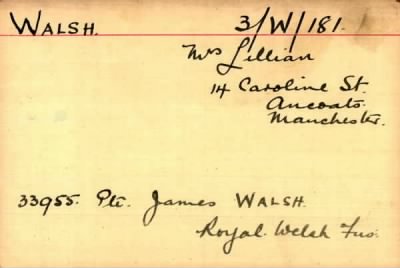 WALSH. 3/W/181.
Mrs Lillian
14 Caroline St.
Ancoats.
Manchester.
33955. Pte. James WALSH.
Royal Welsh Fus.